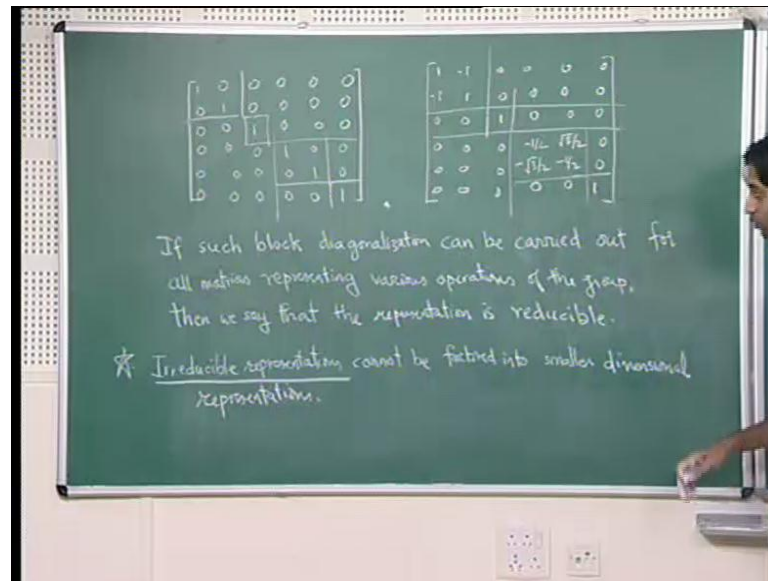 1 0 0 0 0 0
0 1 0 0 0 0
0 0 1 0 0 0
0 0 0 1 0 0
0 0 0 0 1 0
0 0 0 0 0 1
1 -1 0 0 0 0
-1 1 0 0 0 0
0 0 1 0 0 0
0 0 0 -1/2 √3/2 0
0 0 0 -√3/2 -1/2 0
0 0 0 0 0 1
If such block diagonalization can be carried out for
all matrices representing various operations of the group,
then we say that the representation is reducible.
☆ Irreducible representation cannot be factored into smaller dimensional
representations.